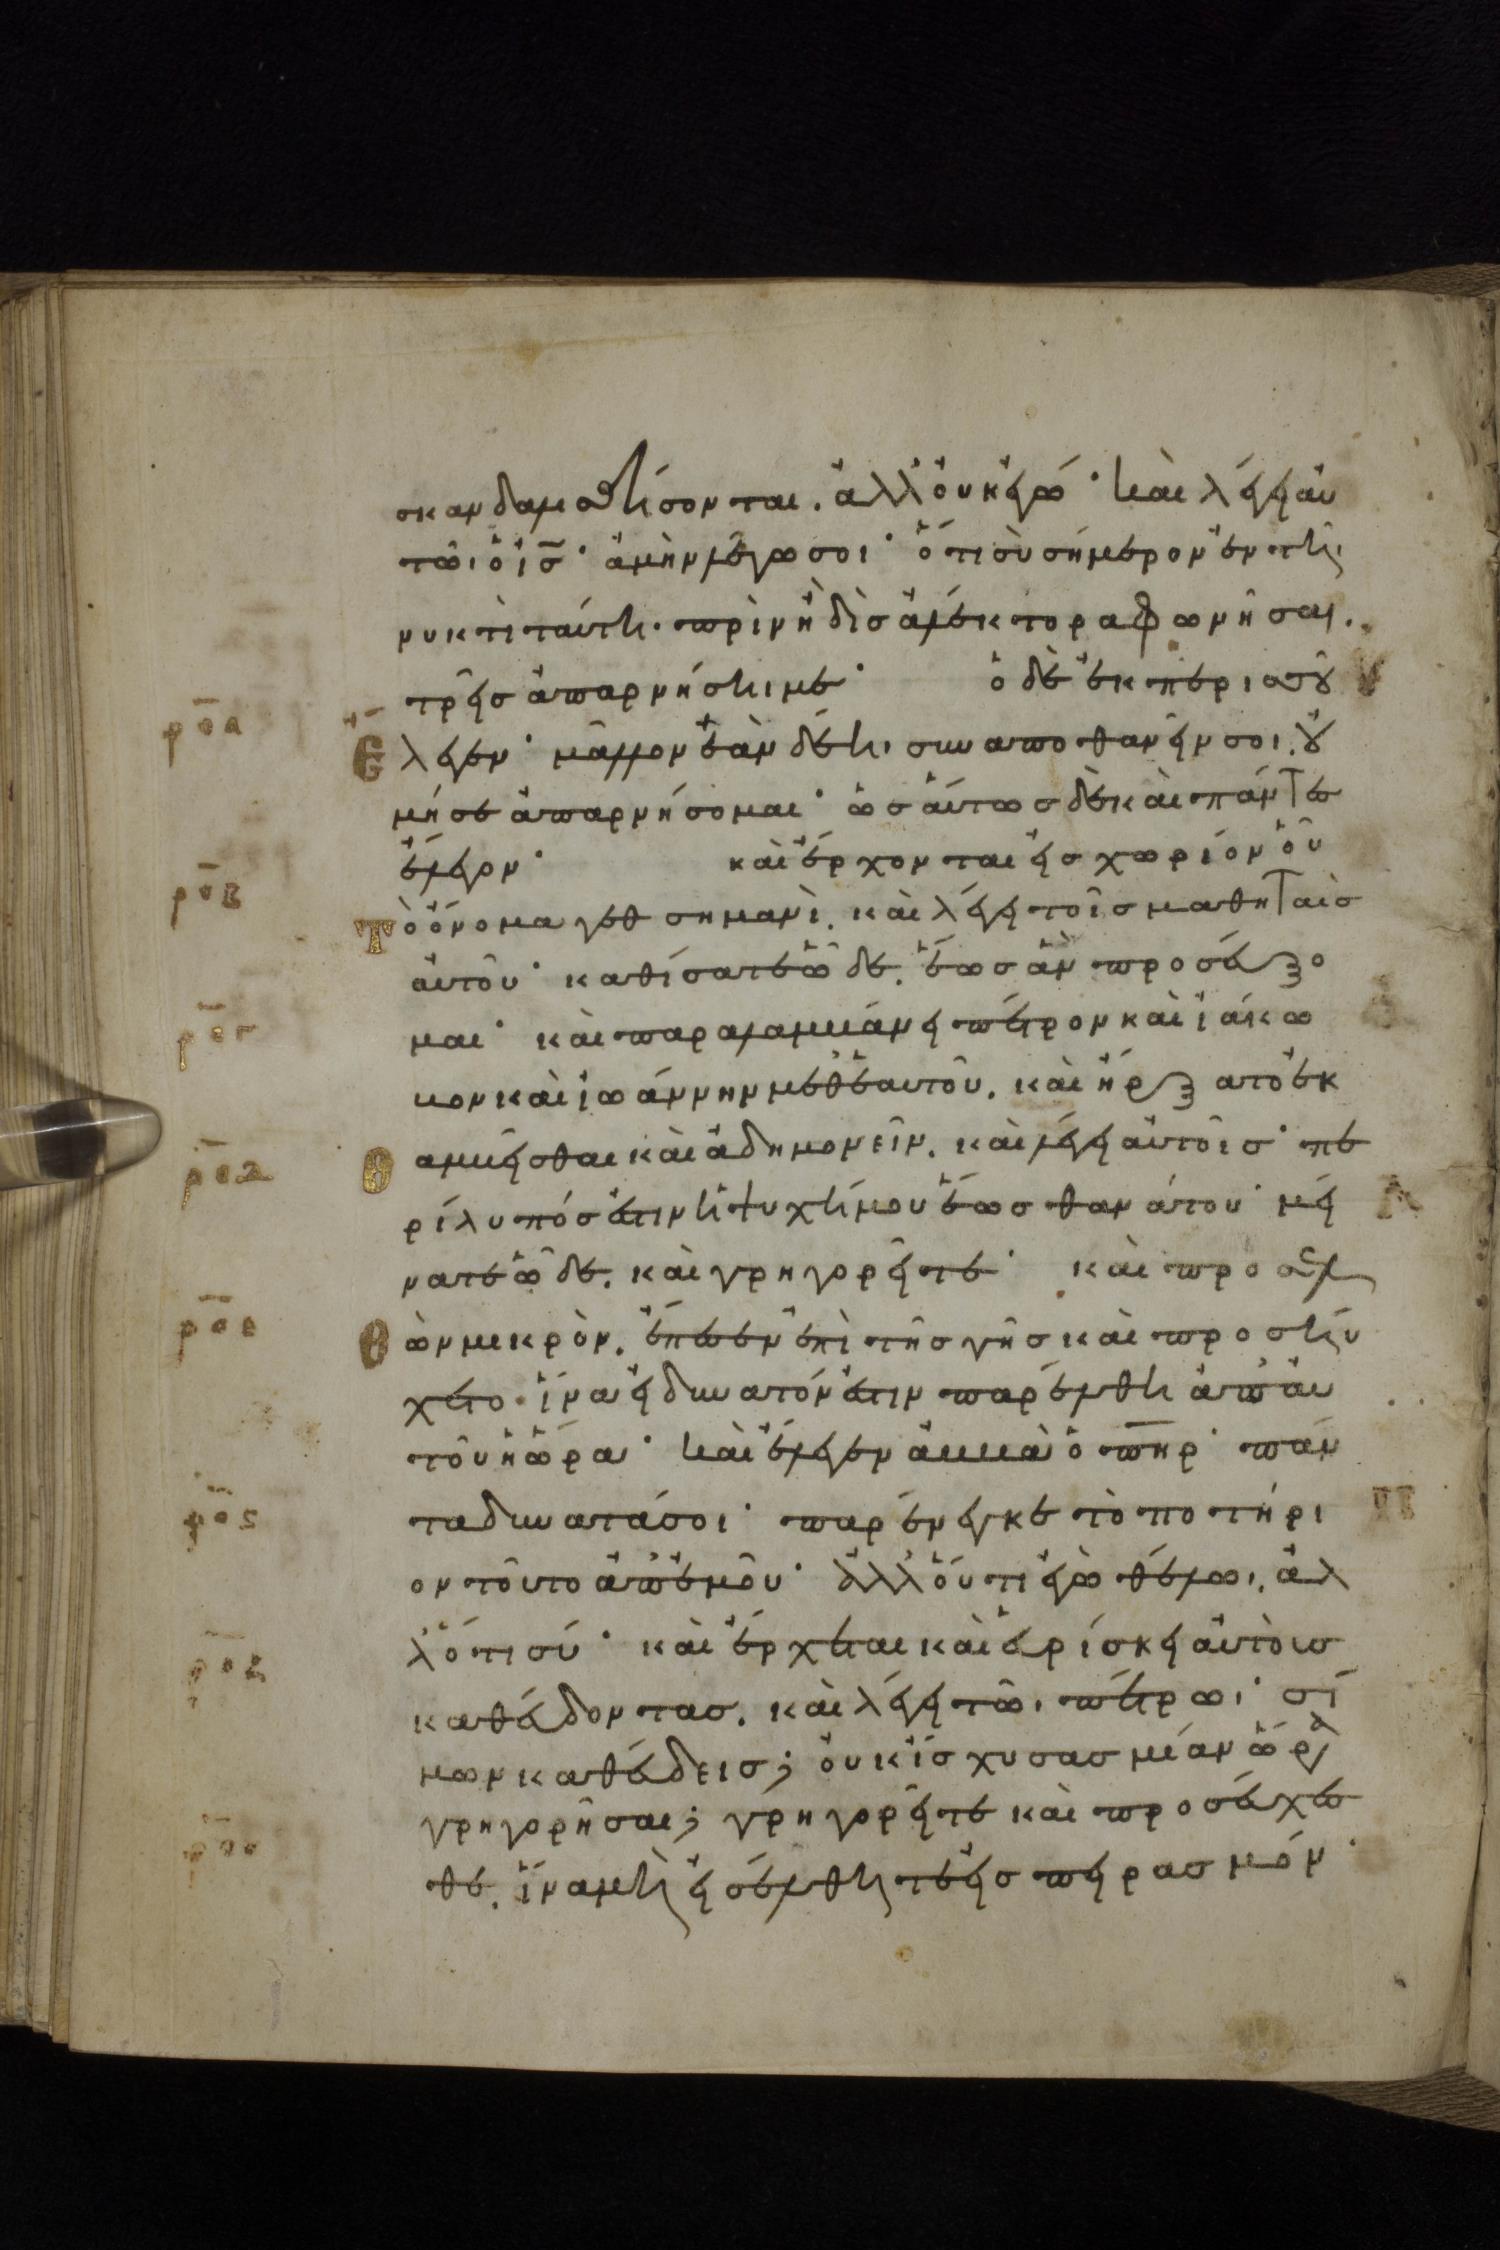 σκανδαλισθήσονται. ἀλλ' οὐκ ἐγώ· καὶ λέγει αὐ
τῶι ὁ ις̅· ἀμὴν λέγω σοι· ὅτι σὺ σήμερον ἐν τῆι
νυκτὶ ταύτη· πρὶν ἢ δὶς ἀλέκτορα φωνῆσαι.
τρεῖς ἀπαρνήσηι με· ὁ δὲ ἐκ περισσοῦ
ρ̅ο̅α̅
ἔλεγεν· μᾶλλον ἐὰν δέηι συναποθανεῖν σοι. οὐ
μή σε ἀπαρνήσομαι· ὡσαύτως δὲ καὶ πάντες
ἔλεγον· καὶ ἔρχονται εἰς χωρίον οὗ
ρ̅ο̅β̅
τὸ ὄνομα γεθσημανὶ. καὶ λέγει τοῖς μαθηταῖς
αὐτοῦ· καθίσατε ὧδε. ἕως ἂν προσεύξο
μαι· καὶ παραλαμβάνει πέτρον καὶ ἰάκω
ρ̅ο̅γ̅
βον καὶ ἰωάννην μεθ' ἑαυτοῦ. καὶ ἤρξατο ἐκ
θαμβεῖσθαι καὶ ἀδημονεῖν. καὶ λέγει αὐτοῖς· πε
ρ̅ο̅δ̅
ρίλυπός ἐστιν ἡ ψυχή μου ἕως θανάτου· μεί
νατε ὧδε. καὶ γρηγορεῖτε· καὶ προελ
θὼν μικρὸν. ἔπεσεν ἐπὶ τῆς γῆς καὶ προσηύ
ρ̅ο̅ε̅
χετο· ἵνα εἰ δυνατόν ἐστιν παρέλθη ἀπ' αὐ
τοῦ ἡ ὥρα· καὶ ἔλεγεν ἀββὰ ὁ πη̅ρ· πάν
τα δυνατά σοι· παρένεγκε τὸ ποτήρι
ρ̅ο̅ς̅
ον τοῦτο ἀπ' ἐμοῦ· ἀλλ' οὔ τι ἐγὼ θέλωι. ἀλ
λ' ὅτι σύ· καὶ ἔρχεται καὶ εὑρίσκει αὐτοὺς
ρ̅ο̅ζ̅
καθεύδοντας. καὶ λέγει τῶι πέτρωι· σί
μων καθεύδεις; οὐκ ἴσχυσας μίαν ὥραν
γρηγορῆσαι; γρηγορεῖτε καὶ προσεύχεσ
θε. ἵνα μὴ εἰσέλθητε εἰς πειρασμόν·